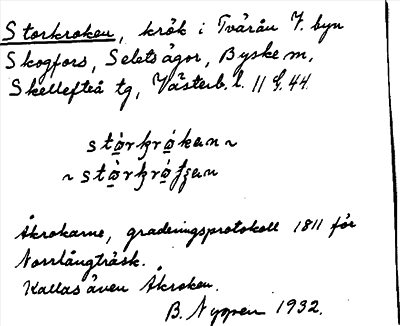 Storkroken, krök i Tvärån V. byn
Skogfors, Selets ägor, Byske sn,
Skellefteå tg, Västerb. l. 11 9.44
Åkrokarne, graderingsprotokoll 1811 för
Norrlångträsk.
Kallas även Åkroken.
B. Nygren 1932.